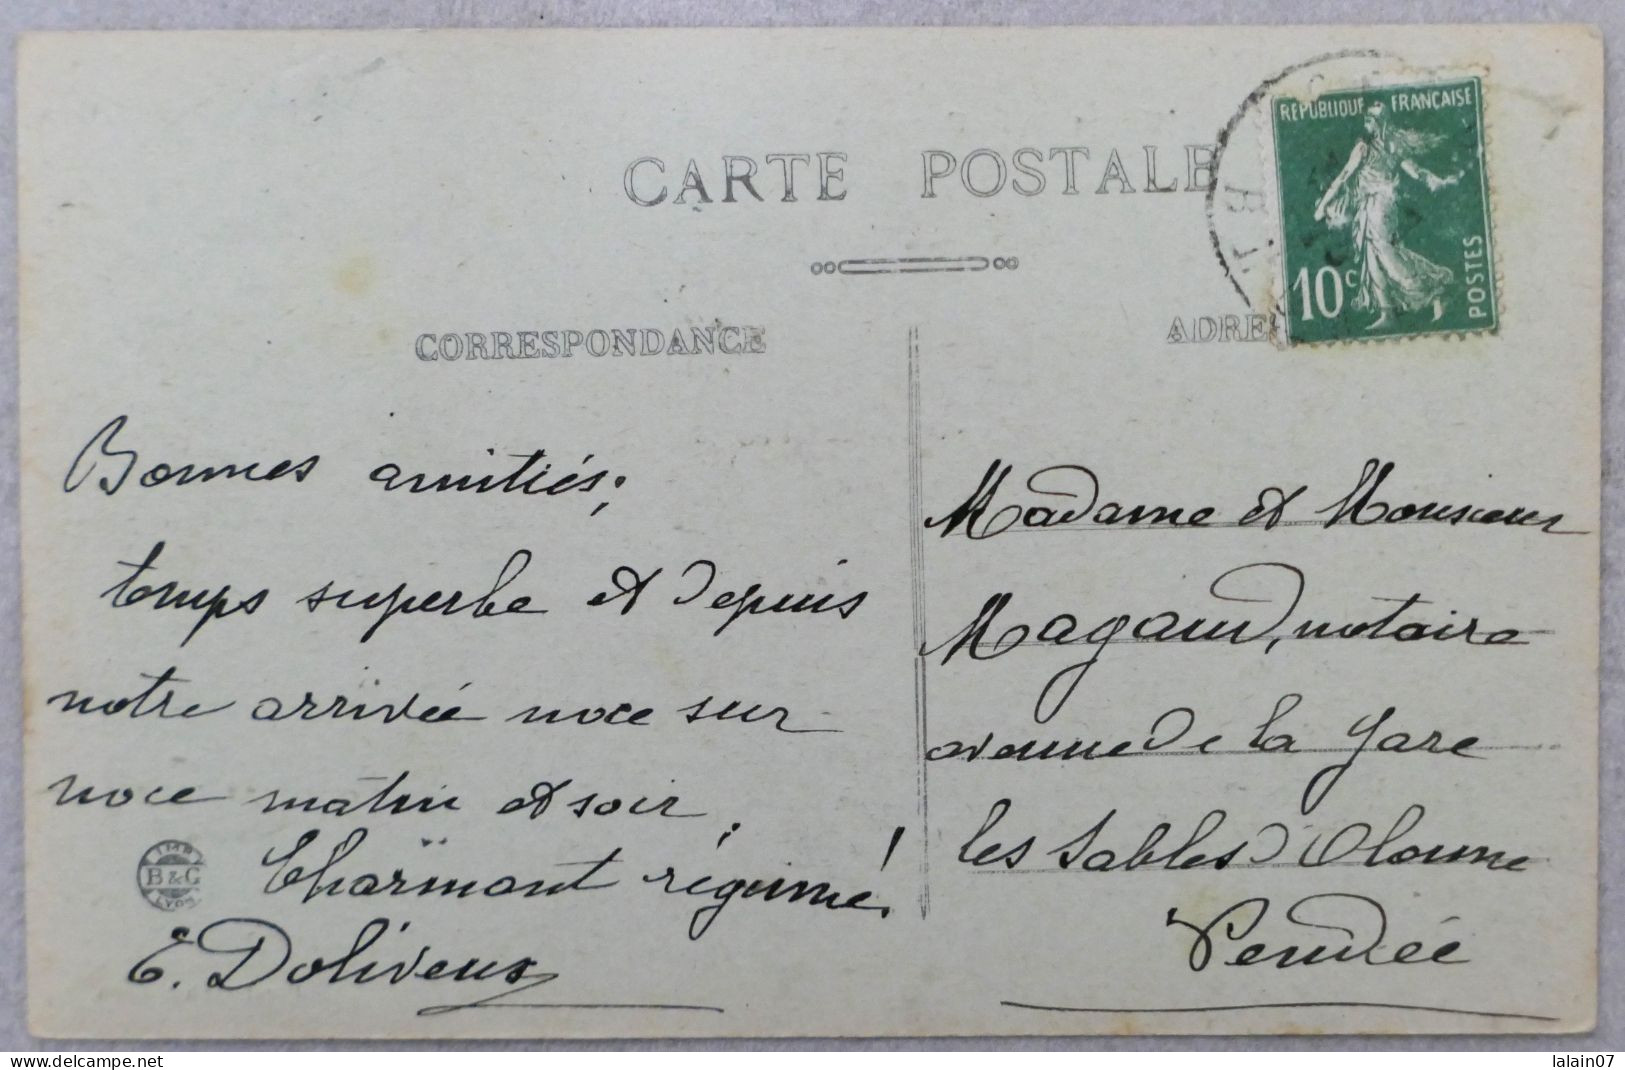 CARTE POSTALE
RÉPUBLIQUE FRANÇAISE
10c
POSTES
CORRESPONDANCE
ADRE
Bonnes amitiés;
temps superbe et depuis
notre arrivée noce sur
noce matin et soir.
Charmant régime!
E. Doliveux
B & G
LYON
Madame et Monsieur
Magaud, notaire
avenue de la Gare
les Sables d'Olonne
Vendée
www.delcampe.net
lalain07